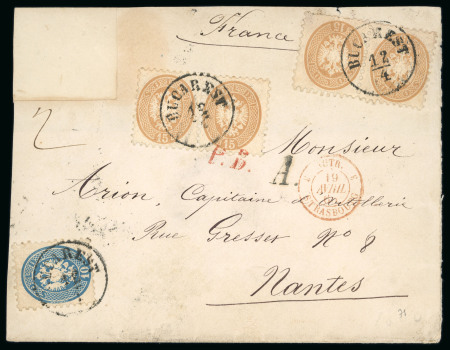 France
BUCAREST
12/4
BUCAREST
12
15
15
P.D.
Monsieur
A.
AUTR.
19
AVRIL
STRASBOURG
Arion, Capitaine d'Artillerie
Rue Gresset No 8
Nantes